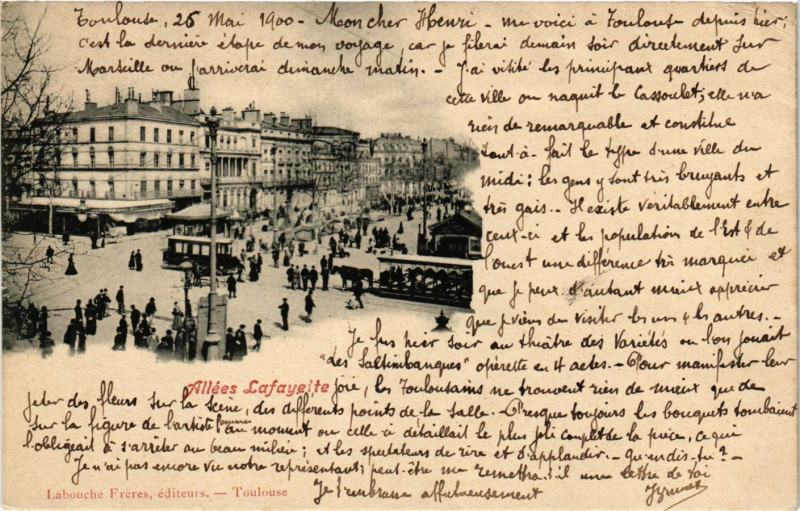 Toulouse, 26 Mai 1900 - Mon cher Henri - me voici à Toulouse depuis hier;
c'est la dernière étape de mon voyage, car je filerai demain soir directement sur
Marseille ou j'arriverai dimanche matin. - J'ai visité les principaux quartiers de
cette ville ou naquit le Cassoulet; elle n'a
rien de remarquable et constitue
tout-à-fait le type d'une ville du
midi: les gens y sont très bruyants et
très gais. - Il existe véritablement entre
ceux-ci et les populations de l'Est & de
l'ouest une différence très marquée et
que je peux d'autant mieux apprécier
que je viens de visiter les uns & les autres. -
Je fus hier soir au théâtre des Variétés ou l'on jouait
"Les Saltimbanques" opérette en 4 actes. - Pour manifester leur
Allées Lafayette
joie, les Toulousains ne trouvent rien de mieux que de
jeter des fleurs sur la scène, des différents points de la salle. - Presque toujours les bouquets tombaient
sur la figure de l'artiste au moment ou celle-ci détaillait le plus joli couplet de la pièce, ce qui
l'obligeait à s'arrêter au beau milieu; et les spectateurs de rire et d'applaudir. - Qu'en dis-tu? -
Je n'ai pas encore vu notre représentant; peut-être me remettra-t-il une lettre de toi
Je t'embrasse affectueusement
Labouche Frères, éditeurs. — Toulouse